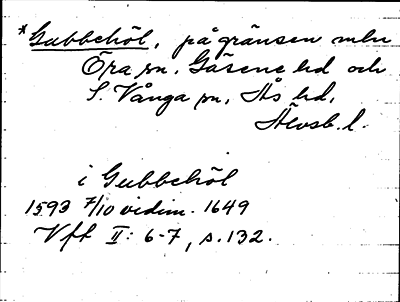 *Gubbehöl, på gränsen mln
Öra sn. Gäsene hd och
S. Vånga sn, Ås hd,
Älvsb. l.
i Gubbehöl
1593 7/10 vidim. 1649
Vff II: 6-7, s. 132.